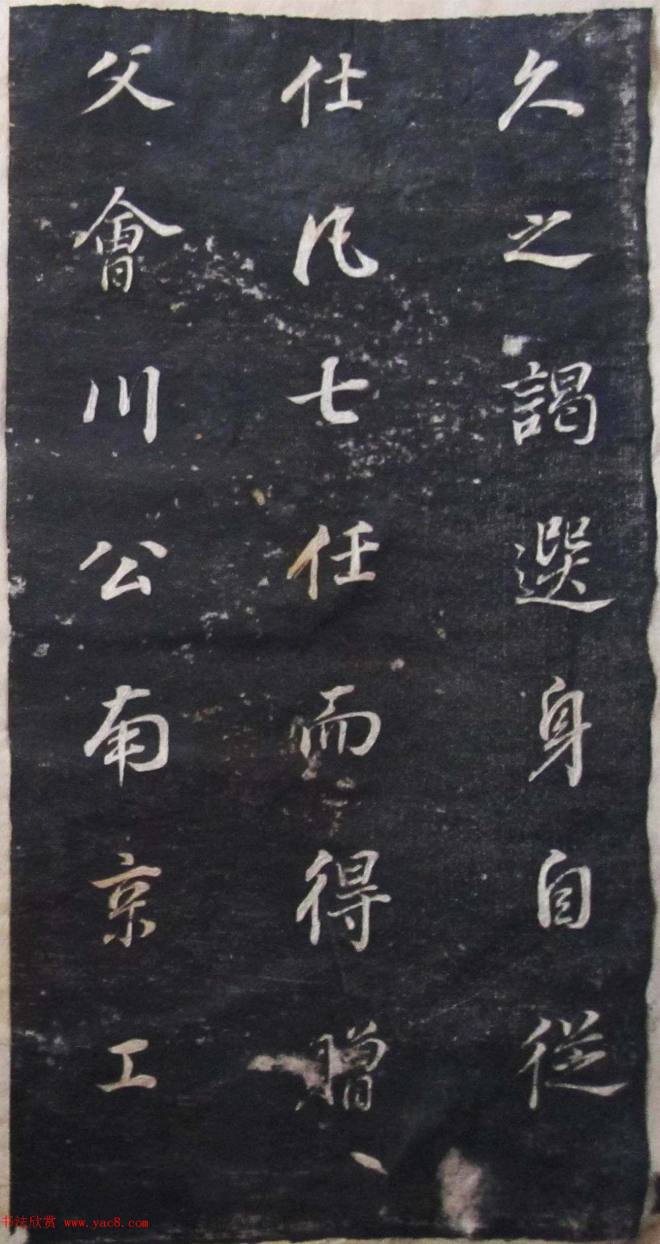 久之謁選身自從
仕凡七任而得贈、
父會川公南京工
书法欣赏 www.yac8.com